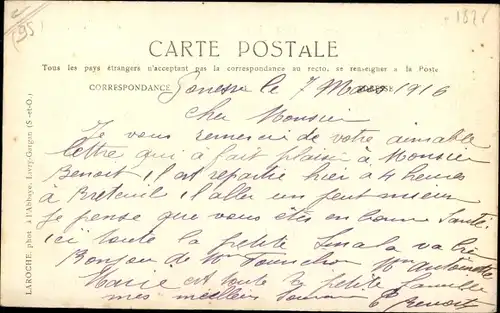 95
CARTE POSTALE
Tous les pays étrangers n'acceptant pas la correspondance au recto, se renseigner à la Poste
CORRESPONDANCE
Gonesse le 7 Mars 1916
Cher Monsieur
Je vous remerci de votre aimable
lettre qui a fait plaisir à Monsieur
Benoit il est repartie hier a 4 heures
à Breteuil il aller un peut mieux
je pense que vous êtes en bonne Santé
ici toute la petite va bien
Bonjour de Mme Mme Antoinette
Marie et toute la petite famille
mes meilleurs
Benoit
LAROCHE, phot. à l'Abbaye, Livry-Gargan (S.-et-O.)